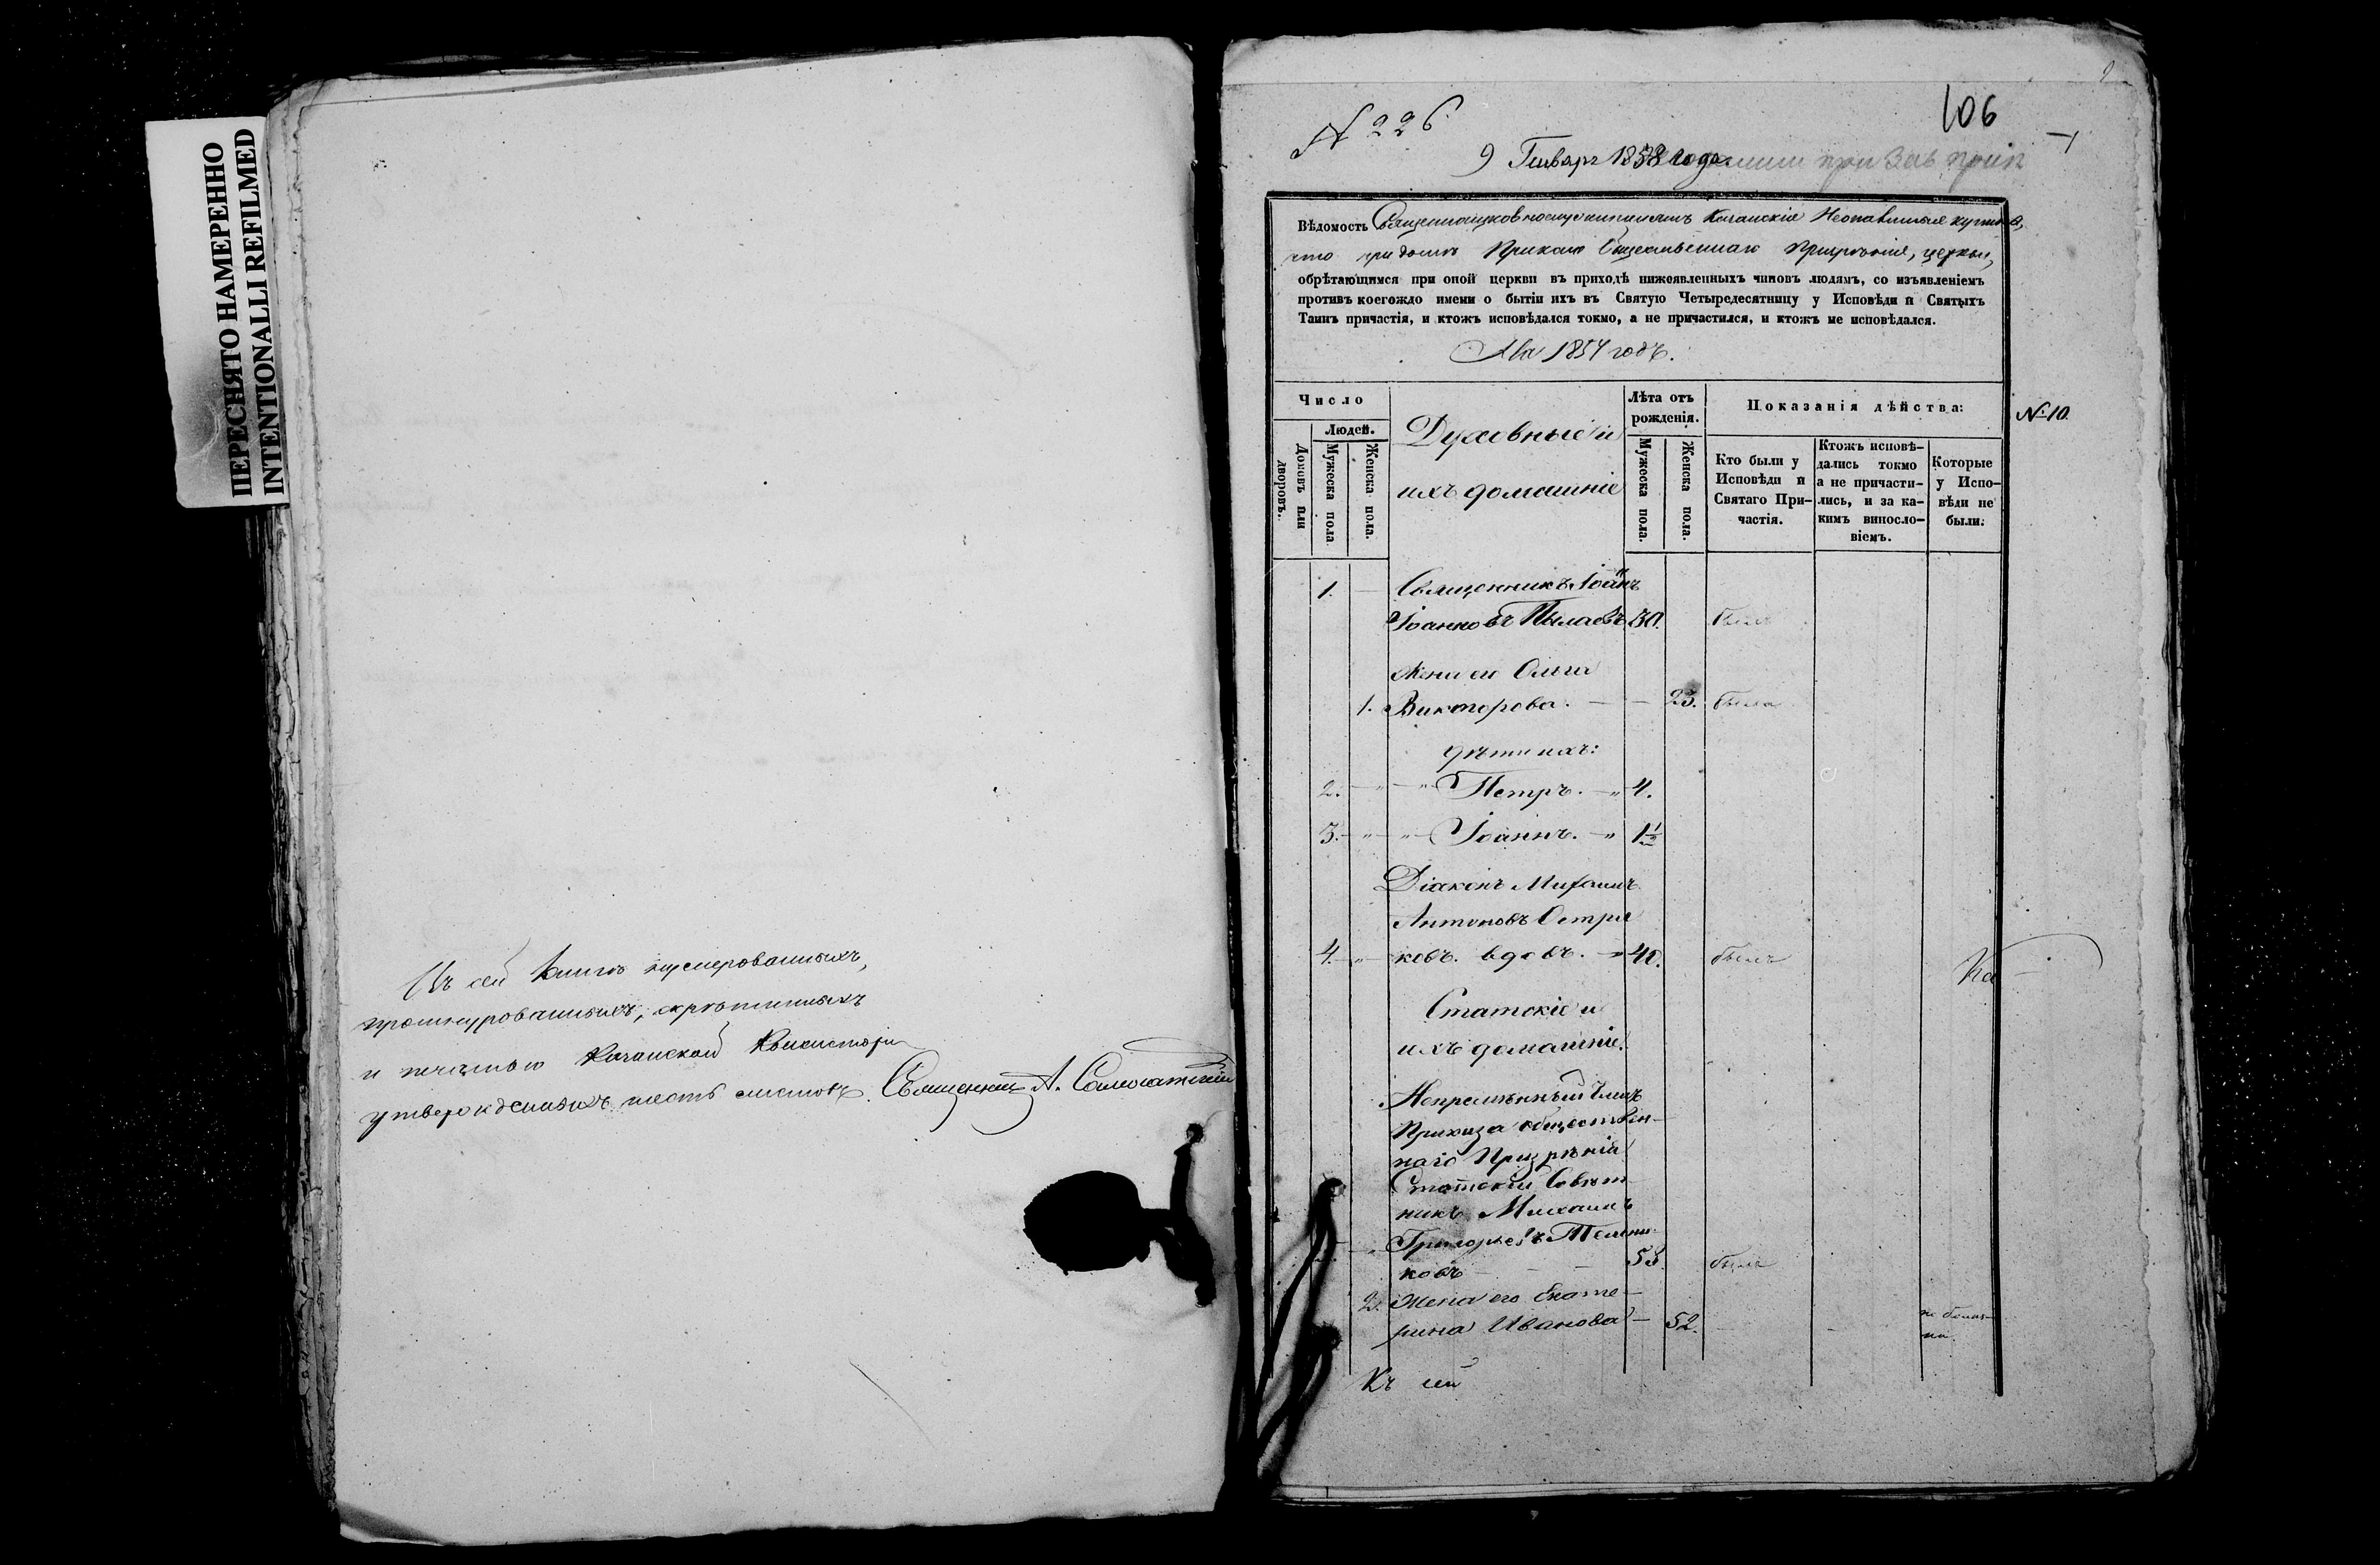 ПЕРЕСНЯТО НАМЕРЕННО
INTENTIONALLI REFILMED
Въ сей книгѣ нумерованныхъ,
прошнурованныхъ, скрѣпленныхъ
и печатью Казанской Консисторіи
утвержденныхъ шесть листовъ. Священникъ А.
106
№ 226
9 Генваря 1858 года
Вѣдомость Казанскія
что при домѣ Приказа Общественнаго Призрѣнія, церкви,
обрѣтающимся при оной церкви въ приходѣ нижеявленныхъ чиновъ людямъ, со изъявленіемъ
противъ коегождо имени о бытіи ихъ въ Святую Четыредесятницу у Исповѣди и Святыхъ
Таинъ причастія, и ктожъ исповѣдался токмо, а не причастился, и ктожъ не исповѣдался.
На 1857 годъ.
Число
Людей.
Домовъ или дворовъ.
Мужеска пола
Женска пола.
Духовные и
ихъ домашніе
Лѣта отъ
рожденія.
Мужеска пола.
Женска пола.
Показанія дѣйства:
Кто были у
Исповѣди и
Святаго При-
частія.
Ктожъ исповѣ-
дались токмо
а не причасти-
лись, и за ка-
кимъ винosло-
віемъ.
Которые
у Испо-
вѣди не
были.
№ 10.
1. Священникъ Іоаннъ
Іоанновъ Пылаевъ 30. былъ
Жена его Ольга
1. Викторова. — — 23. была
дѣти ихъ:
2. — " — " Петръ. — " 4.
3. — " — " Іоаннъ. — " 1 1/2
Діаконъ Михаилъ
Антоновъ Остря
4. — " ковъ. вдовъ. — 40. былъ
Статскіе и
ихъ домашніе.
Непремѣнный Членъ
Приказа обществен-
наго Призрѣнія
Статскій Совѣт
никъ Михаилъ
Григорьевъ Мельни-
ковъ — — — 53. былъ
2. Жена его Екате-
рина Иванова — 52.
Къ сей